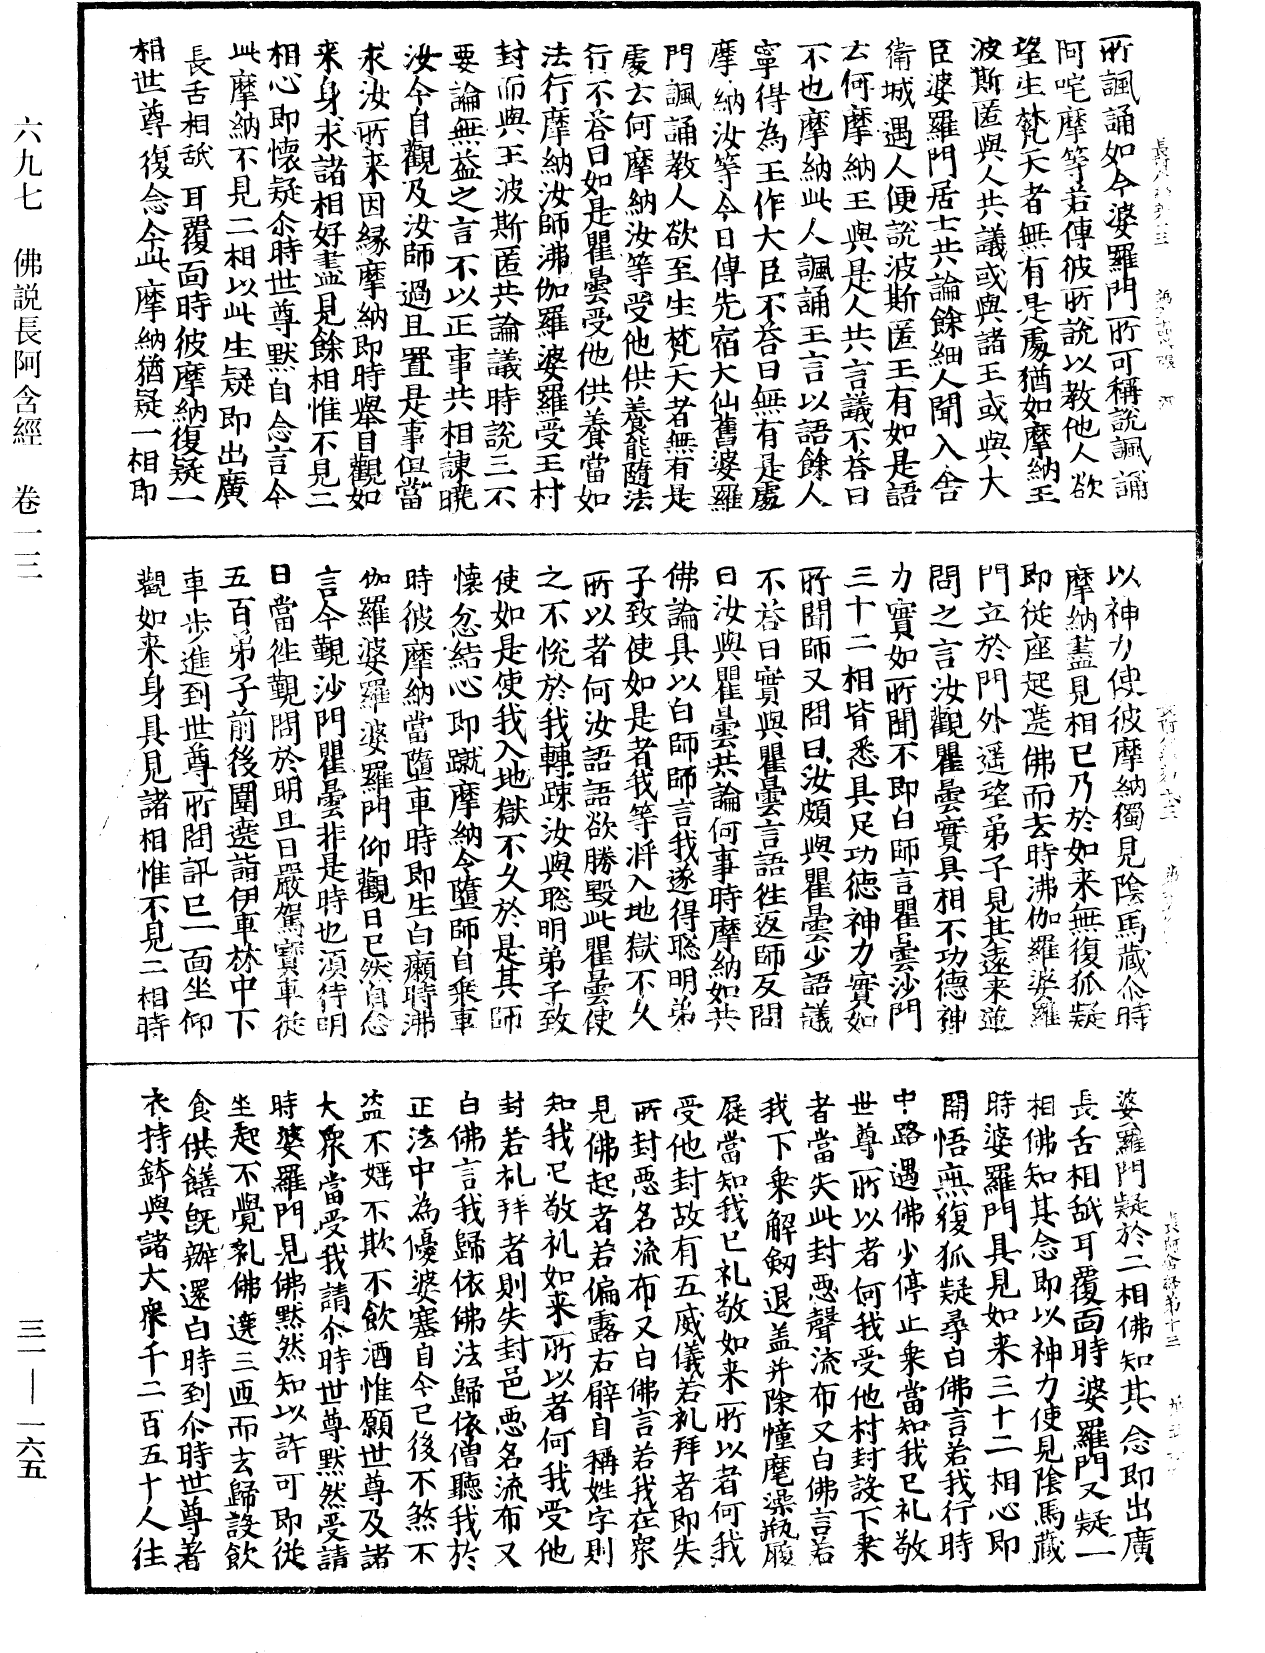 所諷誦如今婆羅門所可稱說諷誦
阿咤摩等若傳彼所說以教他人欲
望生梵天者無有是處猶如摩納王
波斯匿與人共議或與諸王或與大
臣婆羅門居士共論餘細人聞入舍
衛城遇人便說波斯匿王有如是語
云何摩納王與是人共言議不荅曰
不也摩納此人諷誦王言以語餘人
寧得為王作大臣不荅曰無有是處
摩納汝等今日傳先宿大仙舊婆羅
門諷誦教人欲至生梵天者無有是
處云何摩納汝等受他供養能隨法
行不荅曰如是瞿曇受他供養當如
法行摩納汝師沸伽羅婆羅受王村
封而與王波斯匿共論議時說三不
要論無益之言不以正事共相諫曉
汝今自觀及汝師過且置是事但當
求汝所来因緣摩納即時舉目觀如
来身求諸相好盡見餘相惟不見二
相心即懷疑尒時世尊默自念言今
此摩納不見二相以此生疑即出廣
長舌相舐耳覆面時彼摩納復疑一
相世尊復念今此摩納猶疑一相即
以神力使彼摩納獨見陰馬藏尒時
摩納盡見相已乃於如来無復狐疑
即從座起遶佛而去時沸伽羅婆羅
門立於門外遥望弟子見其遠来逆
問之言汝觀瞿曇實具相不功德神
力實如所聞不即白師言瞿曇沙門
三十二相皆悉具足功德神力實如
所聞師又問曰汝頗與瞿曇少語議
不荅曰實與瞿曇言語往返師反問
曰汝與瞿曇共論何事時摩納如共
佛論具以白師師言我遂得聡明弟
子致使如是者我等将入地獄不久
所以者何汝語語欲勝毀此瞿曇使
之不恱於我轉踈汝與聡明弟子致
使如是使我入地獄不久於是其師
懷忿結心即蹴摩納令墮師自乘車
時彼摩納當墮車時即生白癩時沸
伽羅婆羅婆羅門仰觀日已然自念
言今覲沙門瞿曇非是時也須待明
日當往覲問於明旦日嚴駕寶車從
五百弟子前後圍遶詣伊車林中下
車步進到世尊所問訊已一面坐仰
觀如来身具見諸相惟不見二相時
婆羅門疑於二相佛知其念即出廣
長舌相舐耳覆面時婆羅門又疑一
相佛知其念即以神力使見陰馬藏
時婆羅門具見如来三十二相心即
開悟無復狐疑尋白佛言若我行時
中路遇佛少停止乘當知我已礼敬
世尊所以者何我受他村封設下乘
者當失此封惡聲流布又白佛言若
我下乘解劔退盖并除幢麾澡瓶履
屣當知我已礼敬如来所以者何我
受他封故有五威儀若礼拜者即失
所封惡名流布又白佛言若我在衆
見佛起者若偏露右臂自稱姓字則
知我已敬礼如来所以者何我受他
封若礼拜者則失封邑惡名流布又
白佛言我歸依佛法歸依僧聽我於
正法中為優婆塞自今已後不煞不
盗不婬不欺不飲酒惟願世尊及諸
大衆當受我請尒時世尊默然受請
時婆羅門見佛默然知以許可即從
坐起不覺礼佛遶三匝而去歸設飲
食供饍旣辦還白時到尒時世尊著
衣持鉢與諸大衆千二百五十人往
長阿含經第十三
六九七 佛説長阿含經 卷一三
三一——一六五